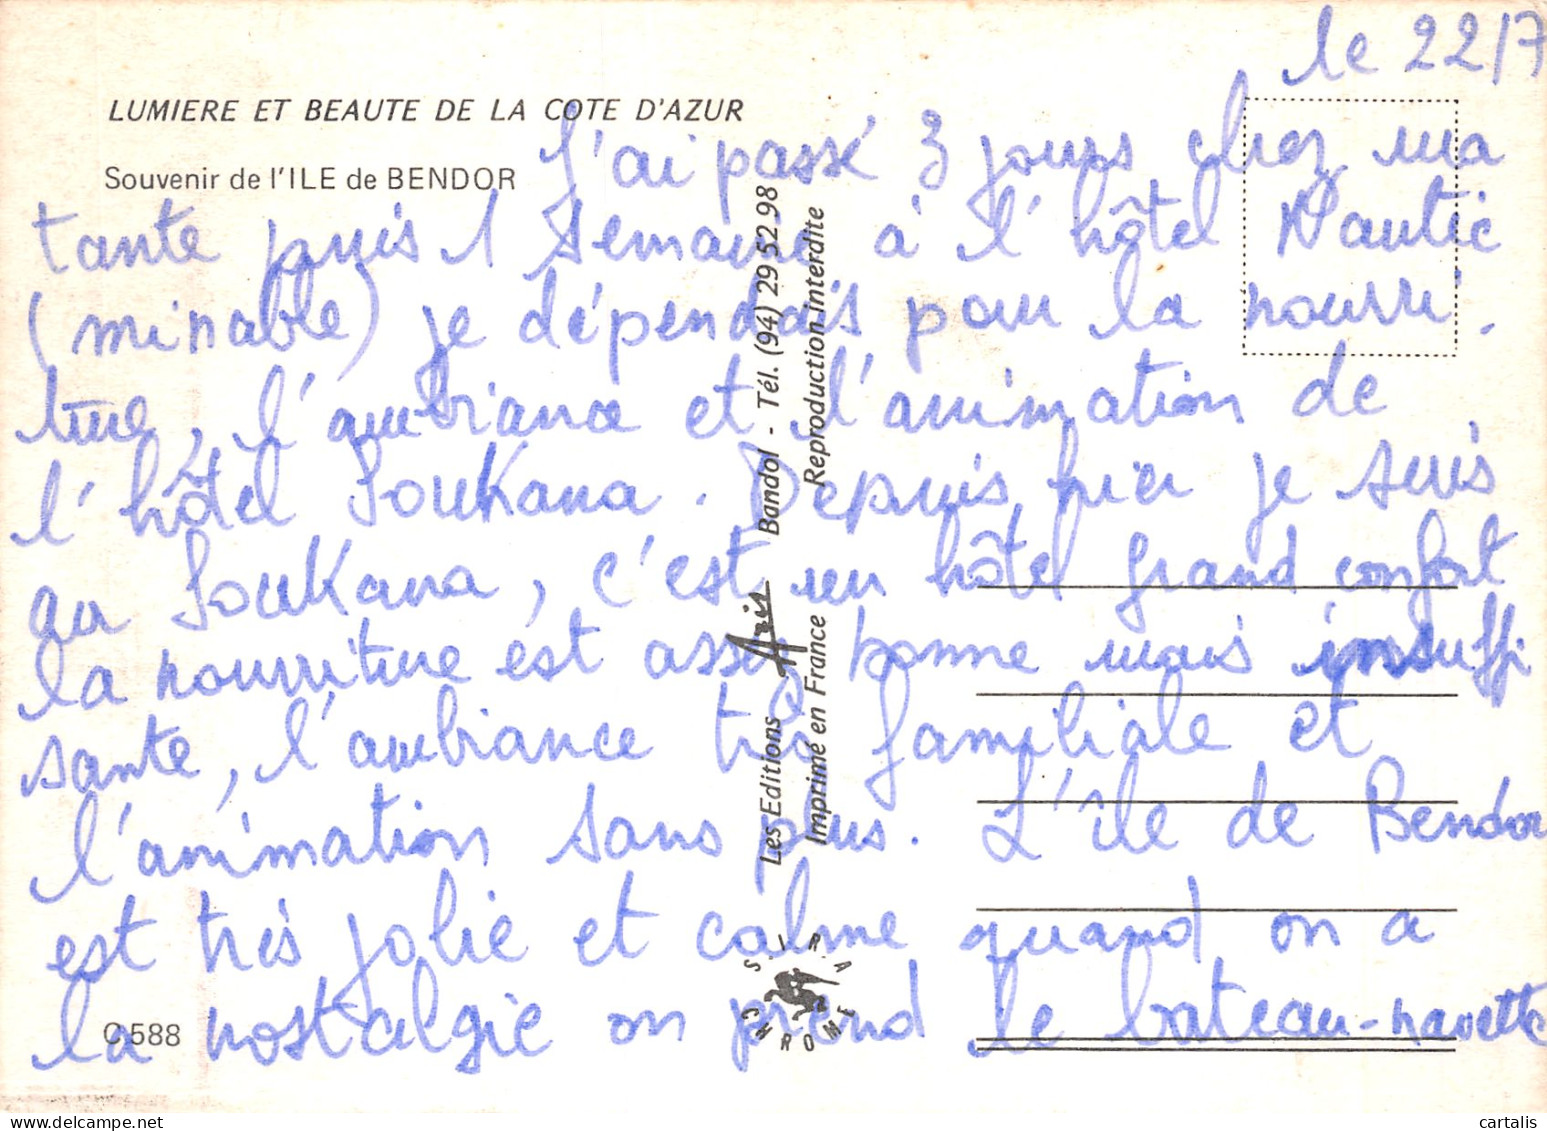 le 22/7
LUMIERE ET BEAUTE DE LA COTE D'AZUR
Souvenir de l'ILE de BENDOR
J'ai passé 3 jours chez ma
tante puis 1 semaine à l'hôtel Nautic
(minable) je dépendais pour la nourri.
ture, l'ambiance et l'animation de
l'hôtel Soukana. Depuis hier je suis
au Soukana, c'est un hôtel grand confort
la nourriture est assez bonne mais insuffi
sante, l'ambiance très familiale et
l'animation sans plus. L'île de Bendor
est très jolie et calme quand on a
la nostalgie on prend le bateau-navette
C 588
Les Editions Aris Bandol - Tél. (94) 29 52 98
Imprimé en France Reproduction interdite
SIRA CHROME
cartalis - www.delcampe.net